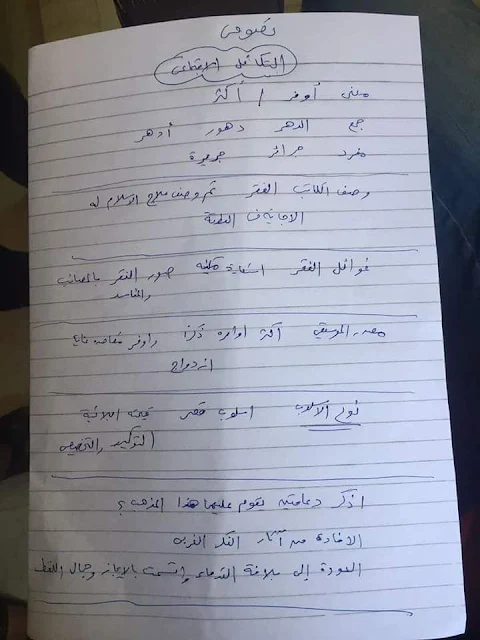 نصوص
التكافل الاجتماعى
معنى أوفر / أكثر
جمع الدهر دهور أدهر
مفرد جرائر جريرة
وصف الكاتب الفقر ثم وصف علاج الاسلام له
الاجابة فى القطعة
غوائل الفقر استعارة مكنية صور الفقر بالمصائب
والمفاسد
مصدر الموسيقى أكثر اواره ذكرا وأوفر
ازدواج
نوع الاسلوب اسلوب قصر قيمته البلاغية
التوكيد والتخصيص
اذكر دعامتين يقوم عليهما هذا المذهب ؟
الافادة من آثار الفكر الغربى
العودة إلى بلاغة القدماء واتسمت بالايجاز وجمال اللفظ